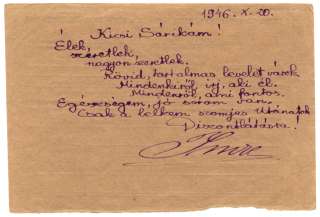 1946. X. 20.
Kicsi Sárikám!
Élek,
szeretlek,
nagyon szeretlek.
Rövid, tartalmas levelet várok
Mindenkiről írj, aki él.
Mindenről, ami fontos.
Egészségem, jó sorom van.
Csak a lelkem szomjas Utánatok
Viszontlátásra!
Imre